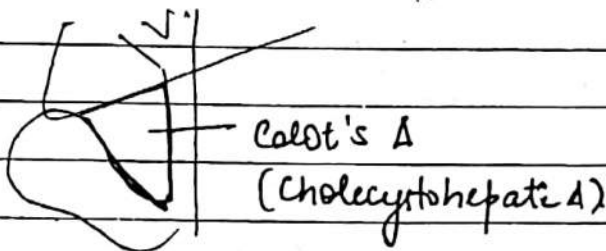 Calot's Δ
(Cholecystohepatic Δ)